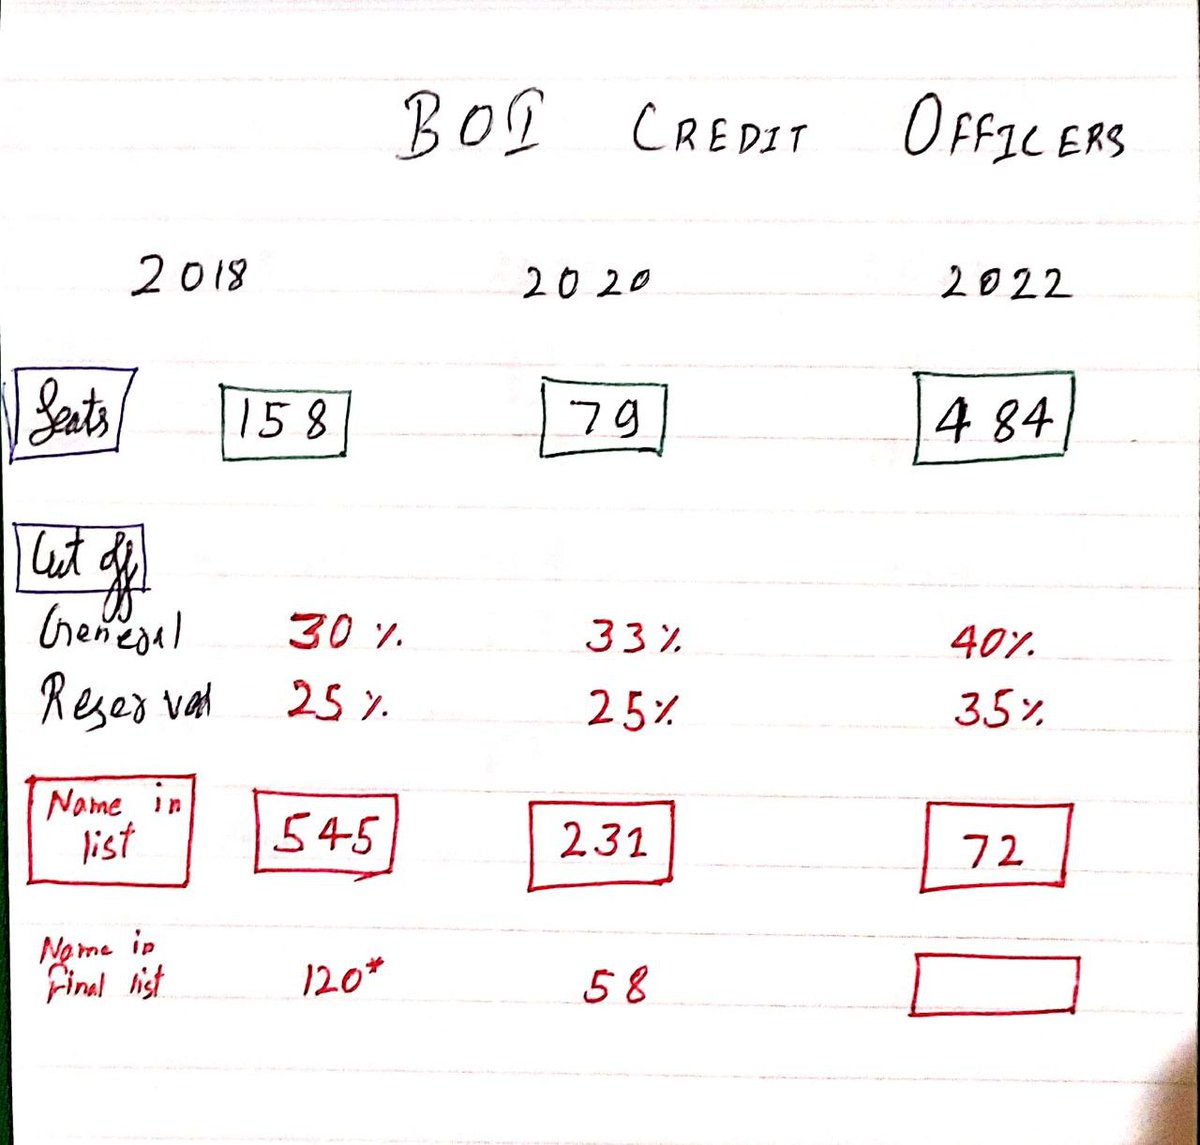 BOI CREDIT OFFICERS
2018 2020 2022
Seats 158 79 484
Cut off
General 30% 33% 40%
Reserved 25% 25% 35%
Name in list 545 231 72
Name in final list 120* 58